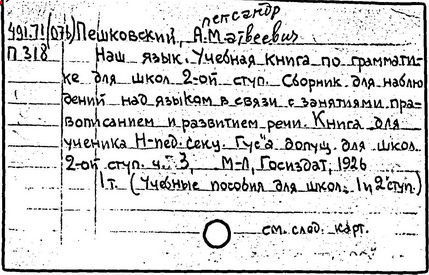 лександр
491.71(07b) Пешковский, А. Матвеевич
П 318 Наш язык. Учебная книга по граммати-
ке для школ 2-ой ступ. Сборник для наблю-
дений над языком в связи с занятиями пра-
вописанием и развитием речи. Книга для
ученика Н-пед. секц. Гус'а допущ. для школ
2-ой ступ. ч. 3, М-Л, Госиздат, 1926
1 т. (Учебные пособия для школ. 1 и 2 ступ.)
см. след. карт.